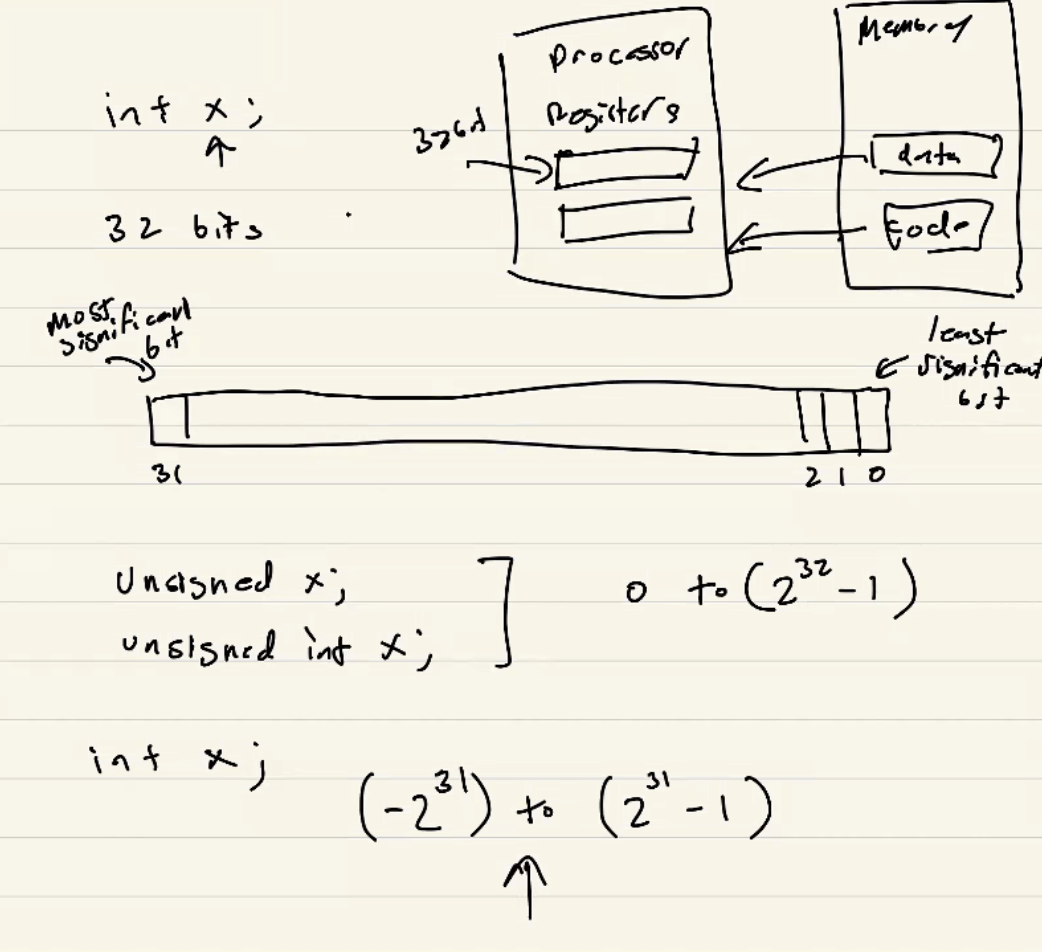 int x;
32 bits
Processor
Registers
32bit
Memory
data
code
most
significant
bit
least
significant
bit
31
2 1 0
Unsigned x;
unsigned int x;
0 to (2^32 - 1)
int x;
(-2^31) to (2^31 - 1)